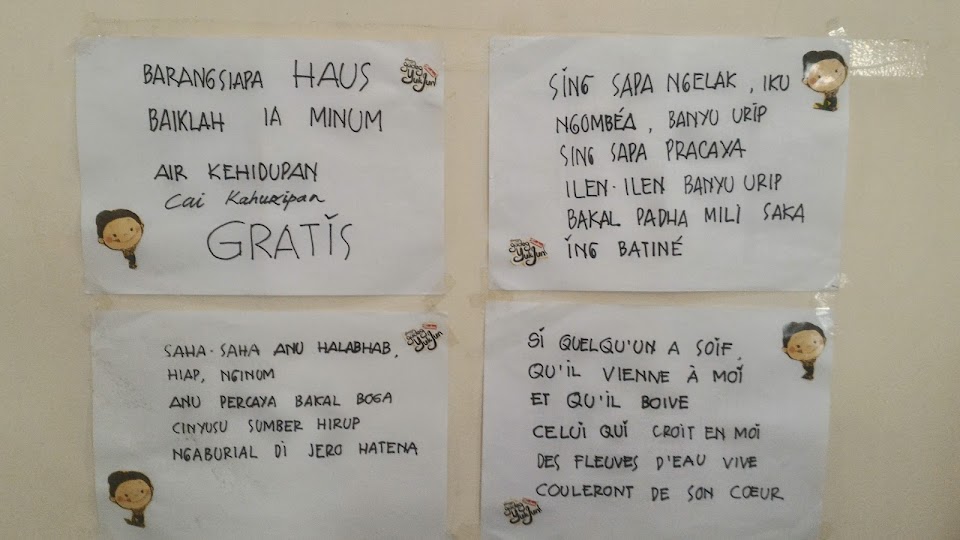 BARANGSIAPA HAUS
BAIKLAH IA MINUM
AIR KEHIDUPAN
Cai Kahuripan
GRATIS
SING SAPA NGELAK, IKU
NGOMBÉA, BANYU URIP
SING SAPA PRACAYA
ILEN-ILEN BANYU URIP
BAKAL PADHA MILI SAKA
ING BATINÉ
SAHA-SAHA ANU HALABHAB,
HIAP, NGINOM
ANU PERCAYA BAKAL BOGA
CINYUSU SUMBER HIRUP
NGABURIAL DI JERO HATENA
SI QUELQU'UN A SOIF,
QU'IL VIENNE À MOI
ET QU'IL BOIVE
CELUI QUI CROIT EN MOI
DES FLEUVES D'EAU VIVE
COULERONT DE SON CŒUR